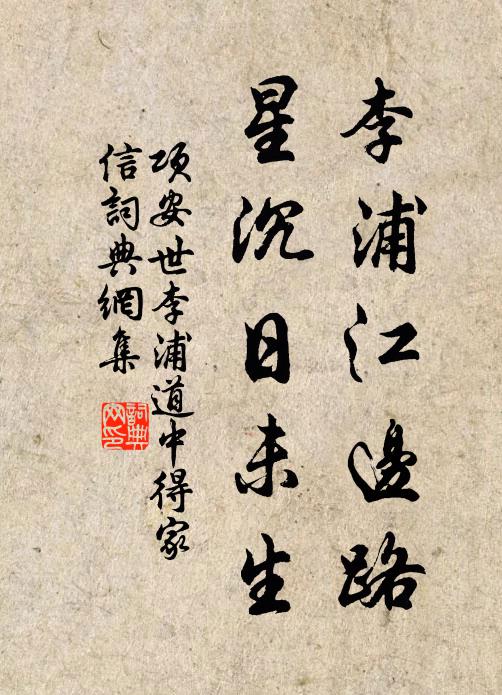 李浦江邊路
星沉日未生
項安世李浦道中得家
信詞典網集
詞典
网印